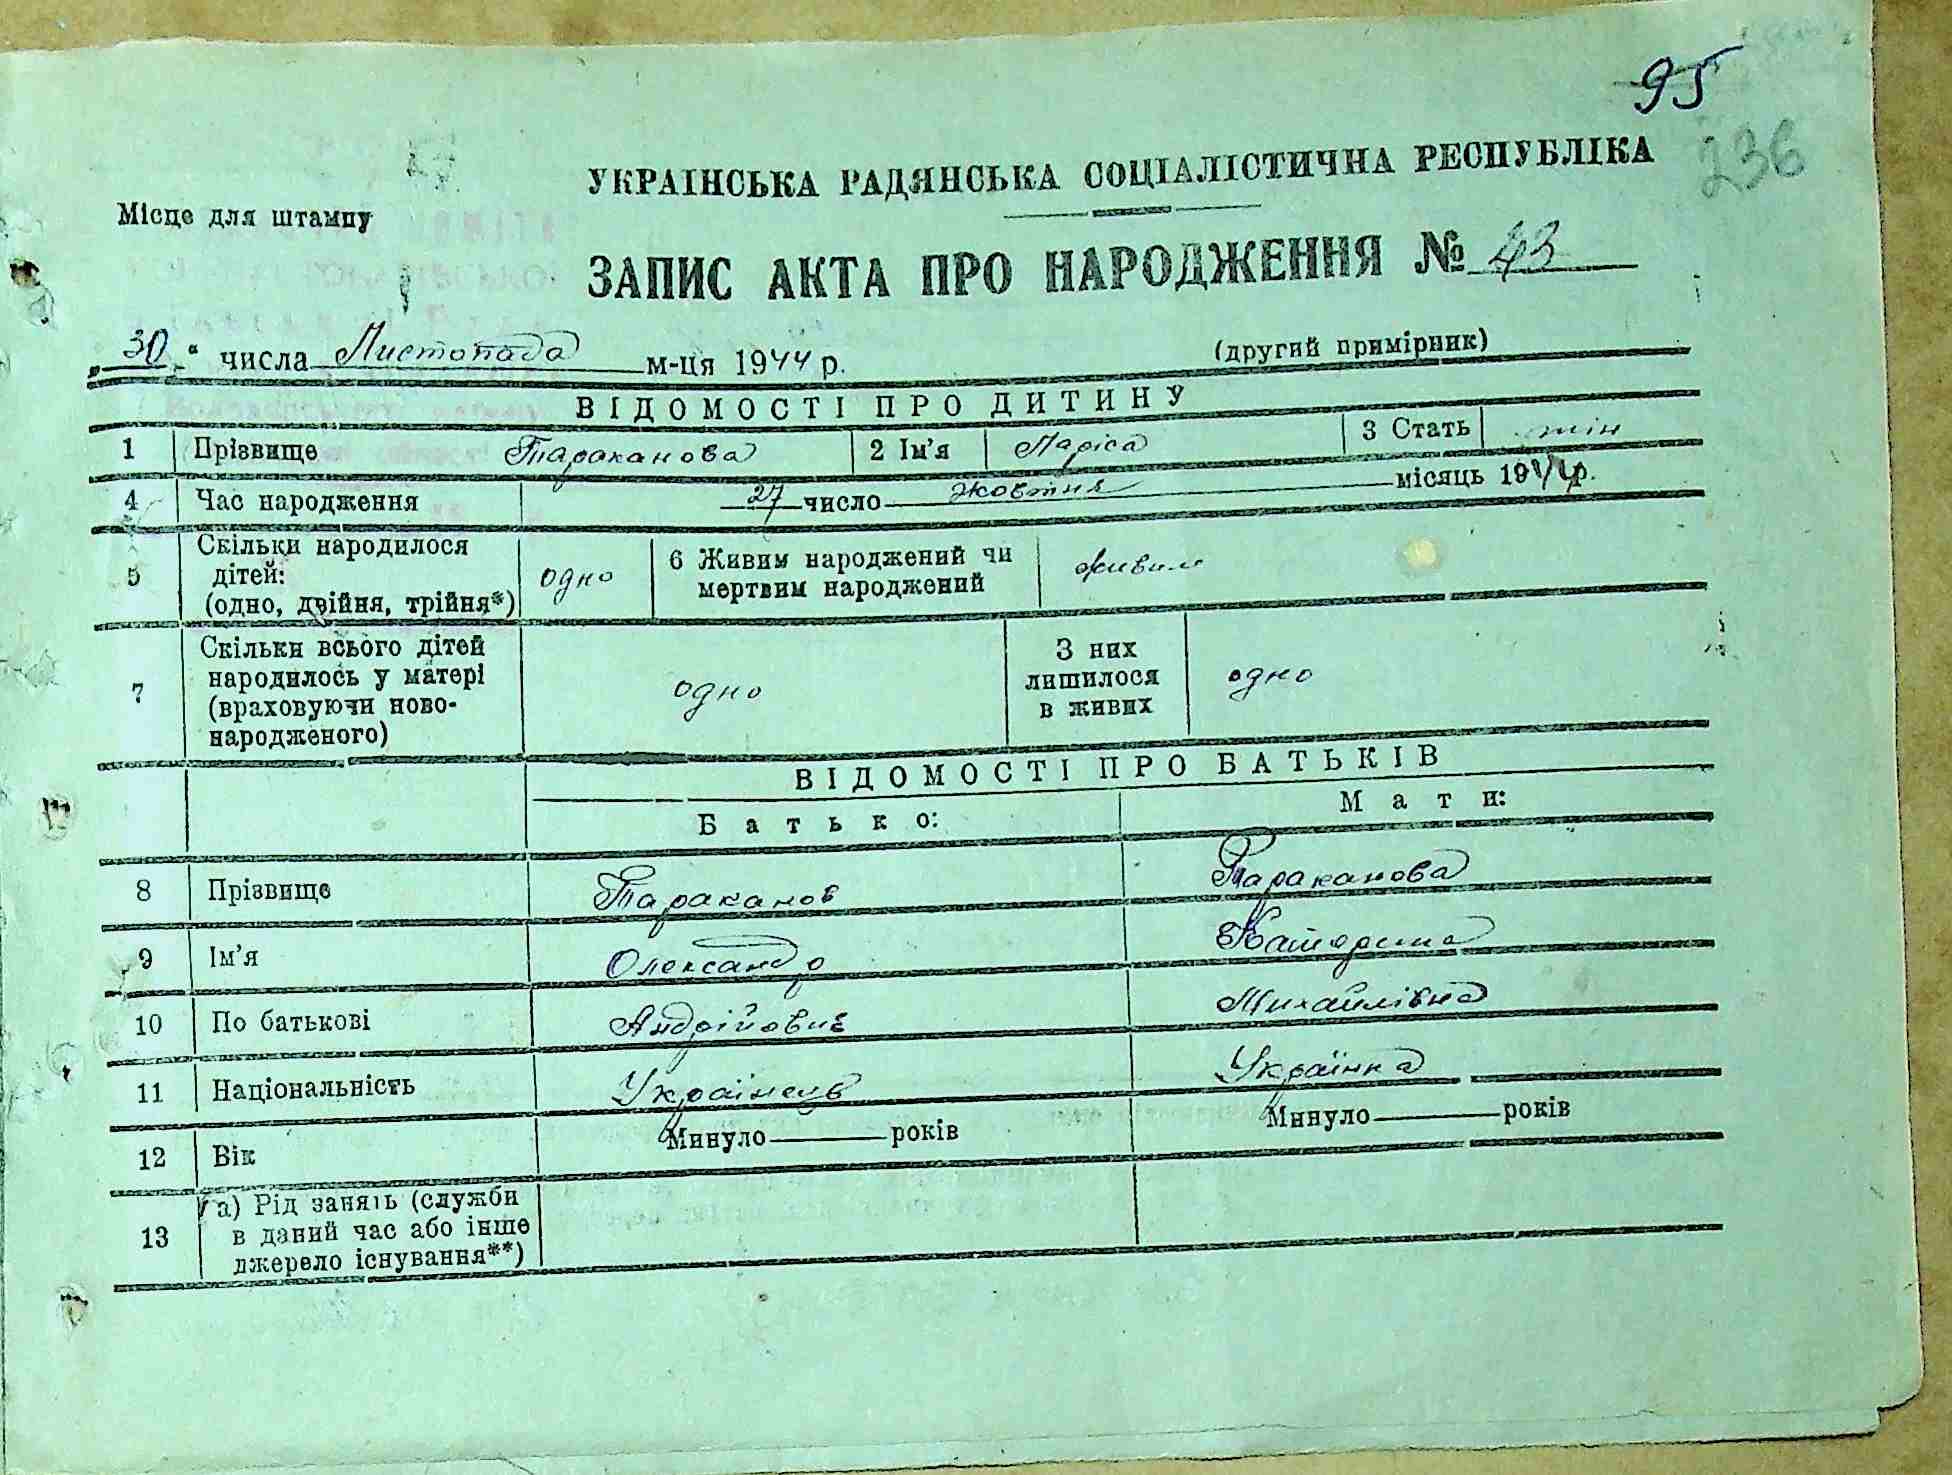 95
236
УКРАЇНСЬКА РАДЯНСЬКА СОЦІАЛІСТИЧНА РЕСПУБЛІКА
Місце для штампу
ЗАПИС АКТА ПРО НАРОДЖЕННЯ № 43
„30“ числа Листопада м-ця 1944 р. (другий примірник)
ВІДОМОСТІ ПРО ДИТИНУ
1 Прізвище Тараканова 2 Ім'я Лариса 3 Стать жін
4 Час народження 27 число жовтня місяць 1944р.
5 Скільки народилося дітей: (одно, двійня, трійня*) одно 6 Живим народжений чи мертвим народжений живим
7 Скільки всього дітей народилось у матері (враховуючи ново-народженого) одно З них лишилося в живих одно
ВІДОМОСТІ ПРО БАТЬКІВ
Батько: Мати:
8 Прізвище Тараканов Тараканова
9 Ім'я Олександр Катерина
10 По батькові Андрійович Михайлівна
11 Національність Українець Українка
12 Вік Минуло років Минуло років
13 а) Рід занять (служби в даний час або інше джерело існування**)